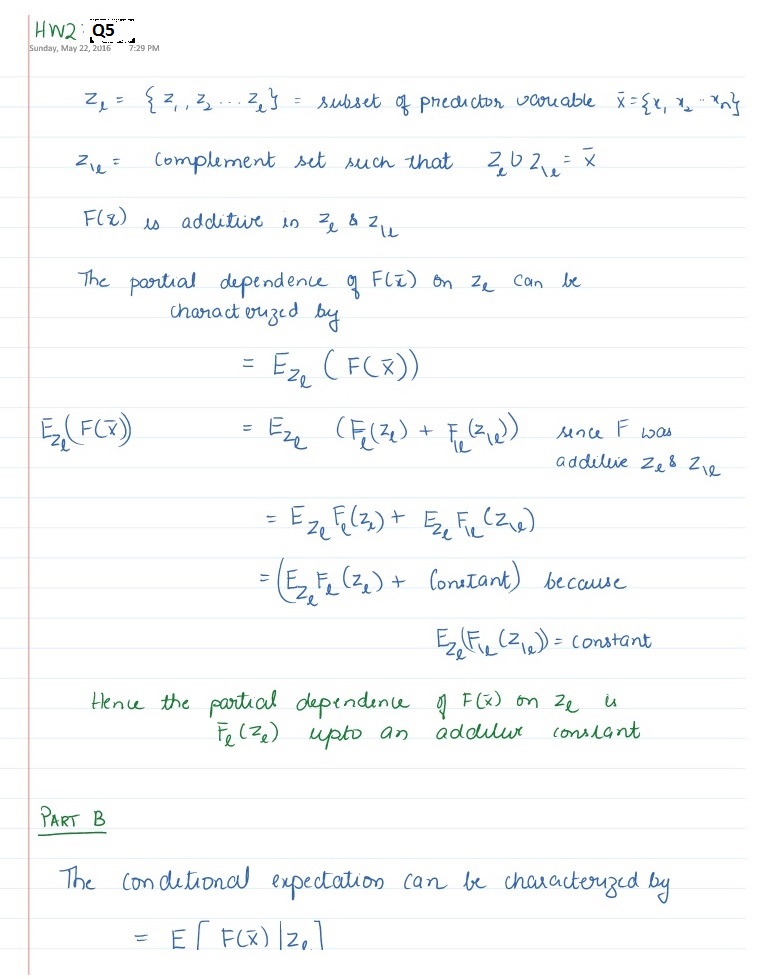 HW2: Q5
Sunday, May 22, 2016 7:29 PM
Z_l = {Z_1, Z_2 ... Z_l} = subset of predictor variable x̄ = {x_1 x_2 .. x_n}
Z_\l = Complement set such that Z_l ∪ Z_\l = x̄
F(x̄) is additive in Z_l & Z_\l
The partial dependence of F(x̄) on Z_l can be
characterized by
= E_{Z_l} (F(x̄))
E_{Z_l}(F(x̄)) = E_{Z_l} (F_l(Z_l) + F_\l(Z_\l)) since F was
additive Z_l & Z_\l
= E_{Z_l} F_l(Z_l) + E_{Z_l} F_\l(Z_\l)
= (E_{Z_l} F_l(Z_l) + Constant) because
E_{Z_l}(F_\l(Z_\l)) = constant
Hence the partial dependence of F(x̄) on Z_l is
F_l(Z_l) upto an additive constant
PART B
The conditional expectation can be characterized by
= E[F(x̄)|Z_l]